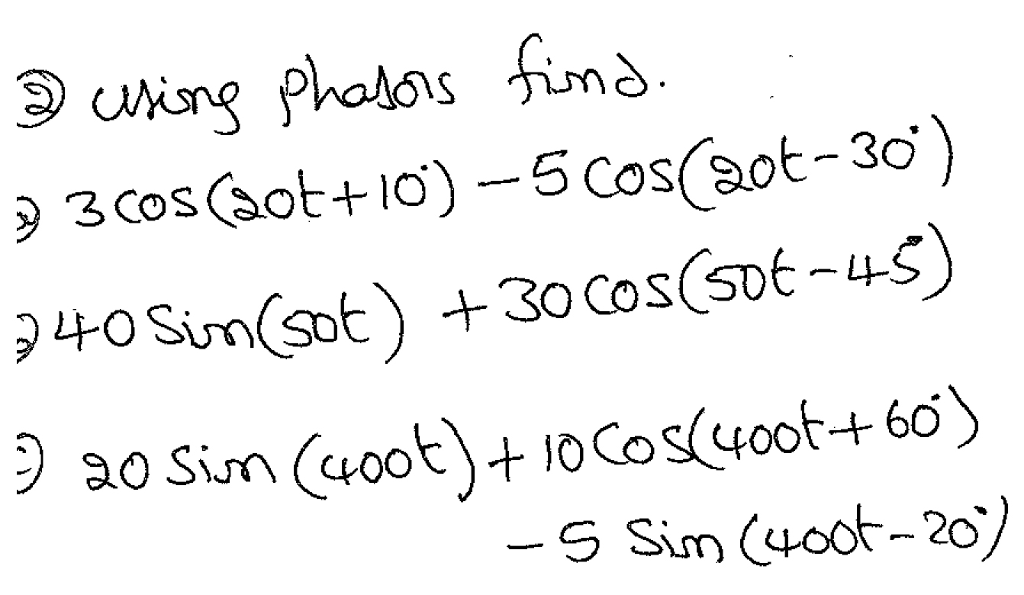 ② using phasors find.
3 cos(20t+10°) - 5 cos(20t-30°)
40 sin(50t) + 30 cos(50t-45°)
20 sin (400t) + 10 cos(400t+60°)
- 5 sin (400t-20°)